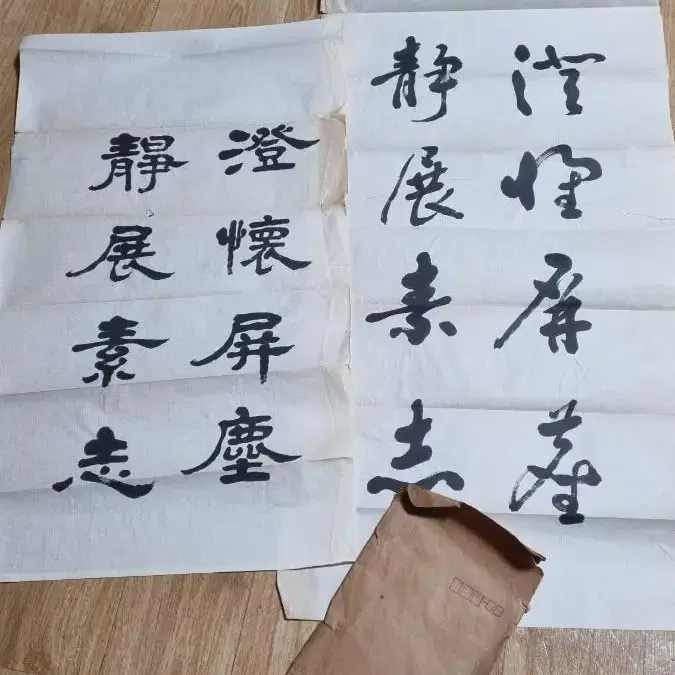 澄懷屏塵
靜展素志
澄懷屏塵
靜展素志